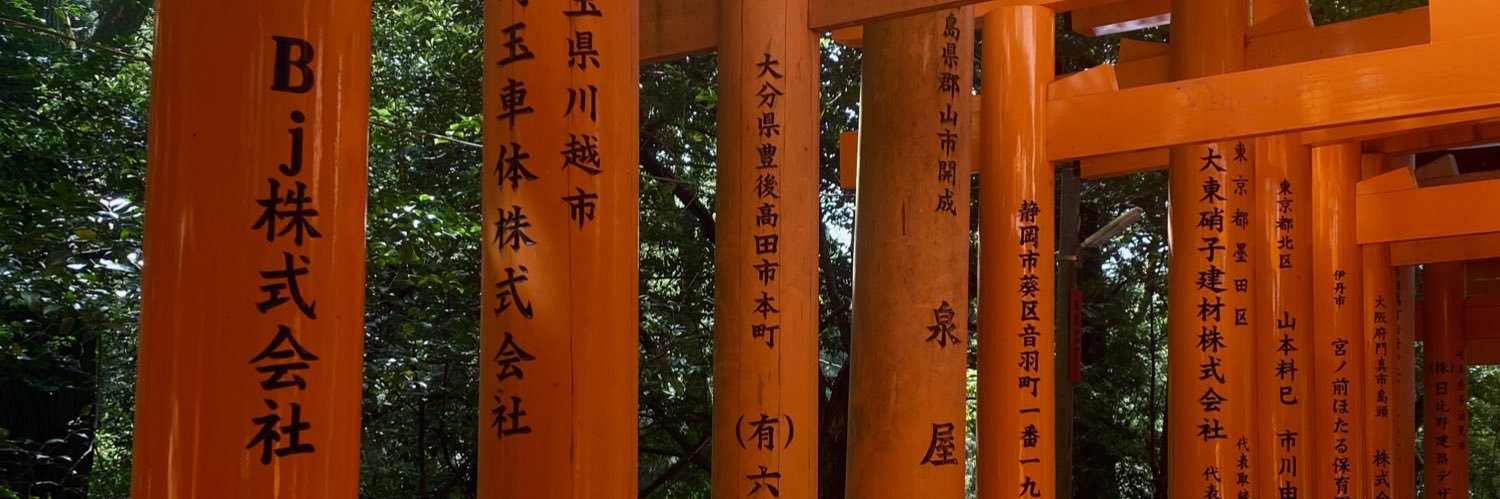 Bj株式会社
玉県川越市
玉車体株式会社
大分県豊後高田市本町
(有)六
島県郡山市開成
泉屋
静岡市葵区音羽町一番一九
東京都墨田区
大東硝子建材株式会社 代表取締
代表
東京都北区
山本料巳 市川由
伊丹市
宮ノ前ほたる保育
大阪府門真市島頭 株式
(株)日比野建築デザ